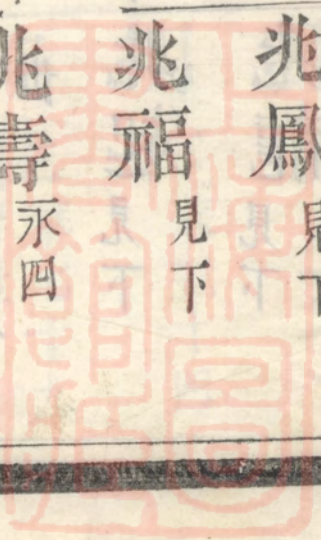 兆鳳見下
兆福見下
兆壽永四